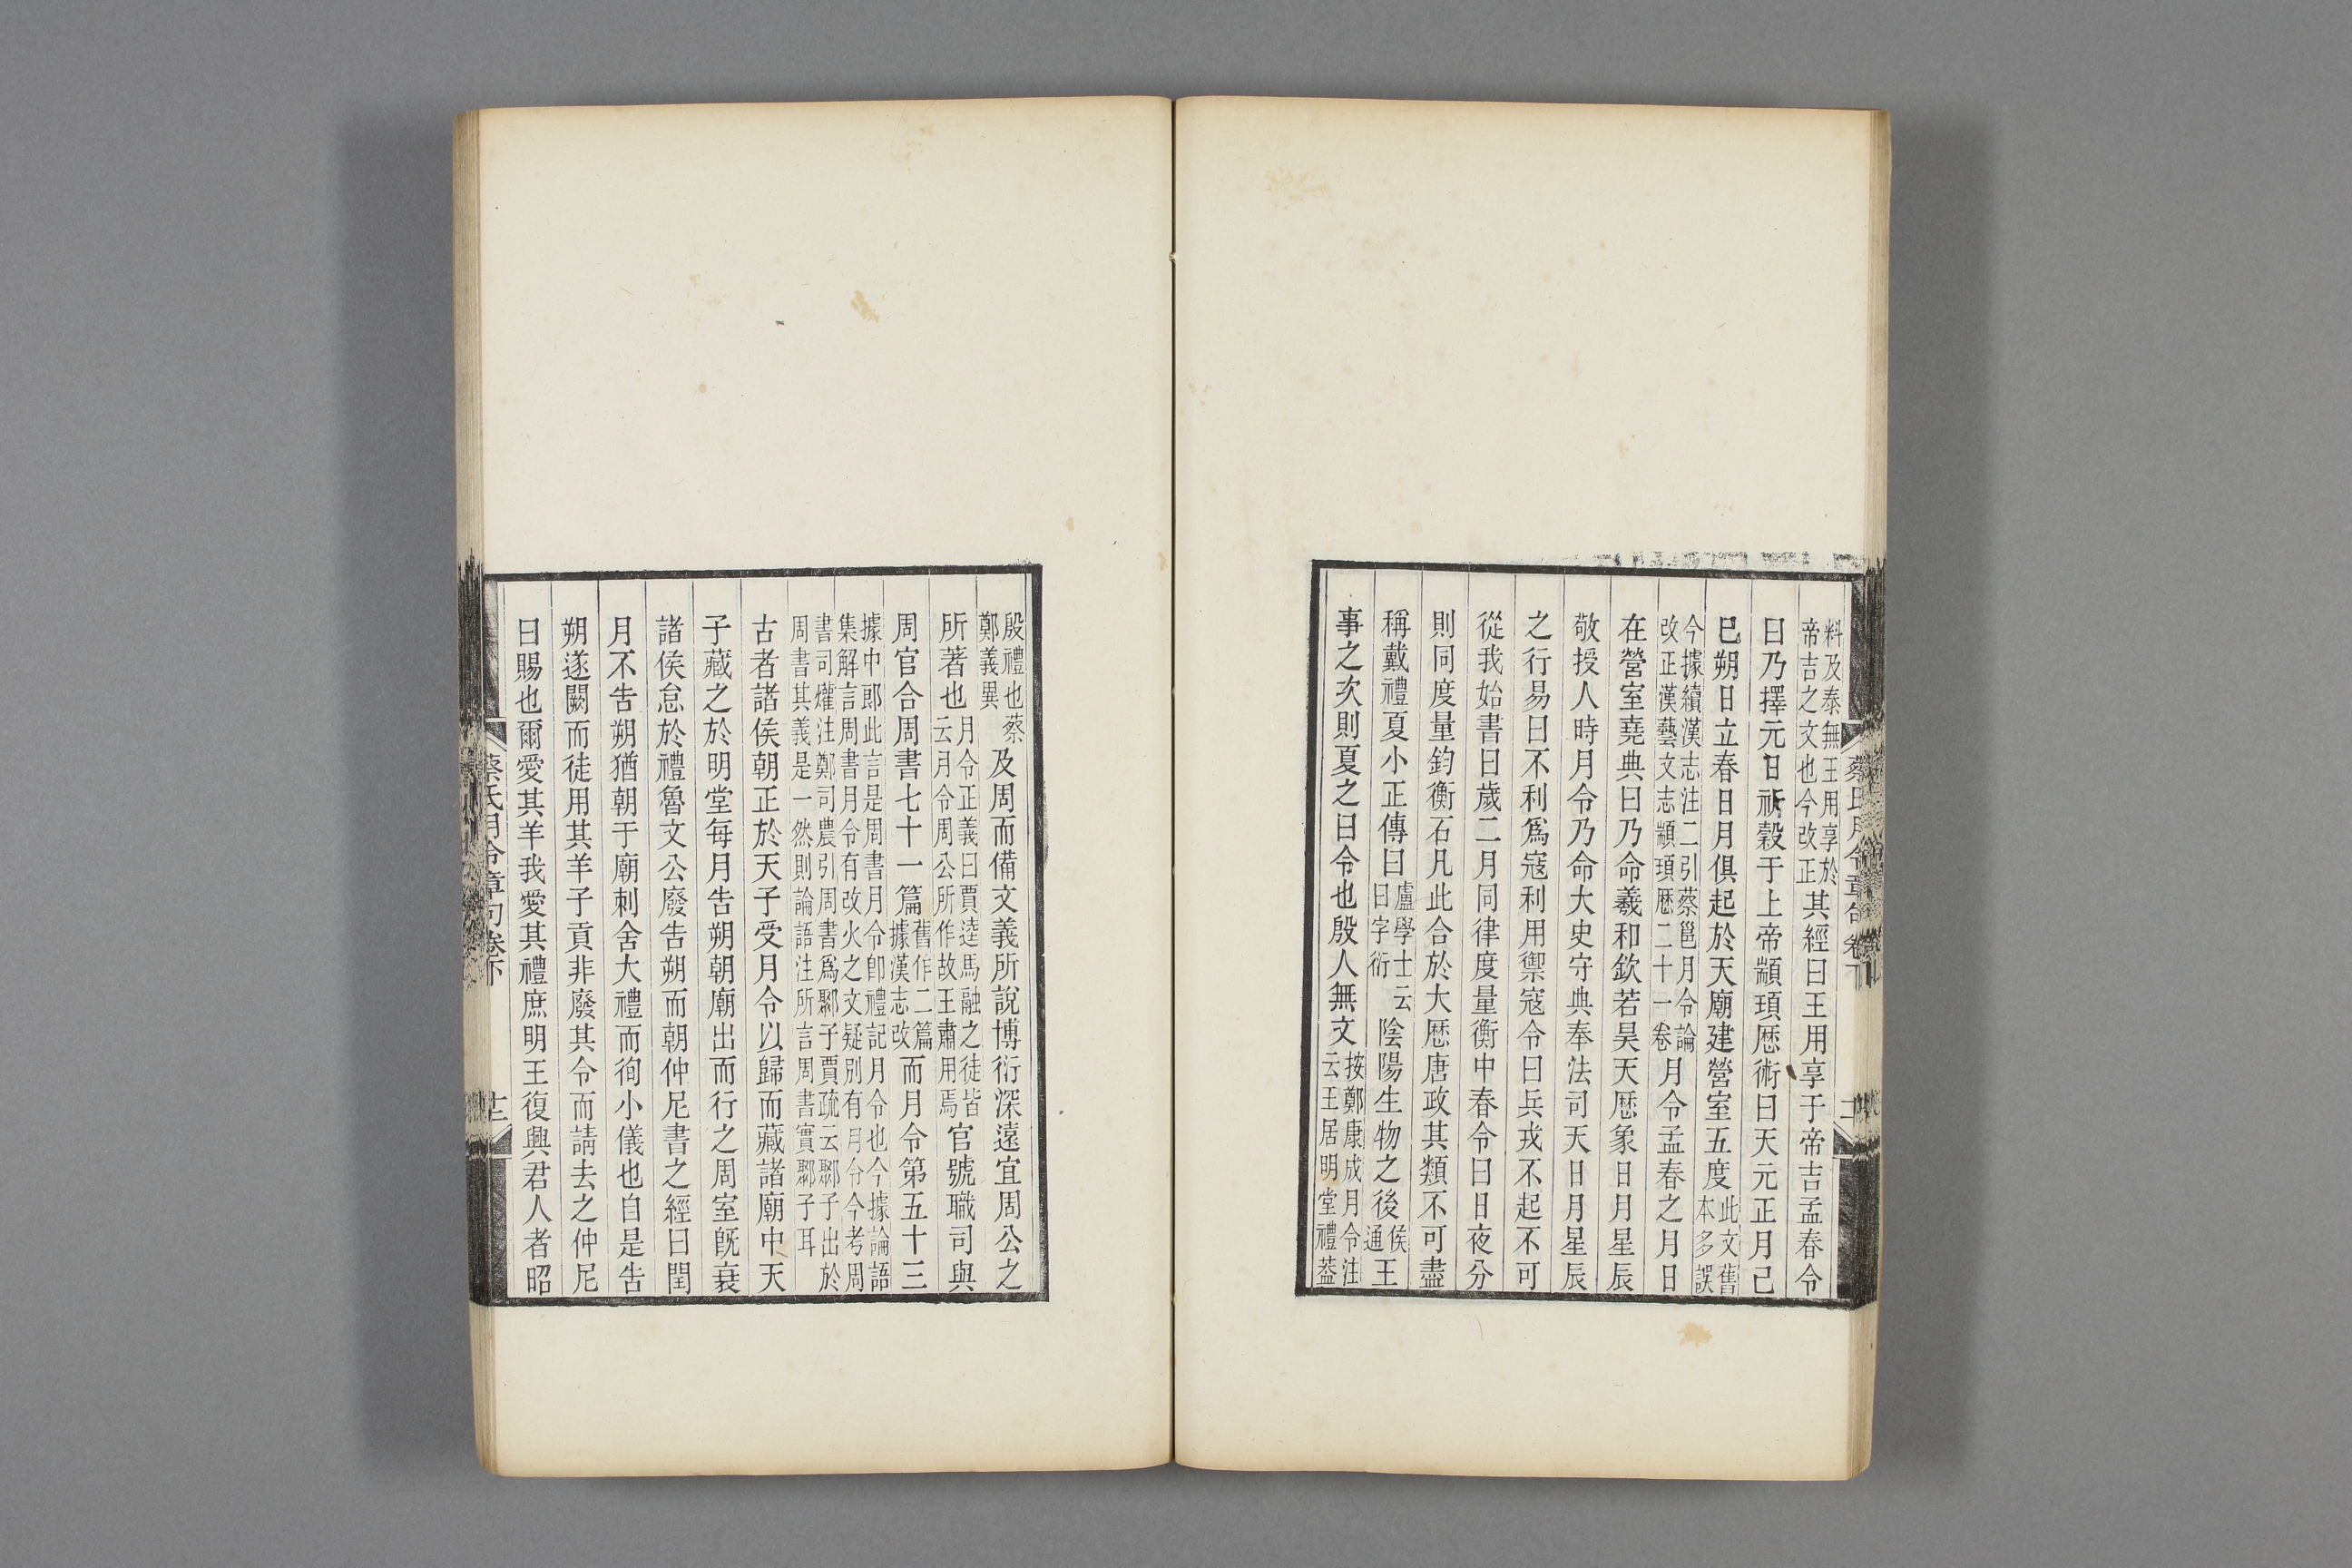 料及泰無王用享於
帝吉之文也今改正
其經曰王用享于帝吉孟春令
曰乃擇元日祈穀于上帝顓頊厯術曰天元正月己
巳朔日立春日月俱起於天廟建營室五度
此文舊
本多誤
今據續漢志注二引蔡邕月令論
改正漢藝文志顓頊厯二十一卷
月令孟春之月日
在營室堯典曰乃命羲和欽若昊天厯象日月星辰
敬授人時月令乃命大史守典奉法司天日月星辰
之行易曰不利爲寇利用禦寇令曰兵戎不起不可
從我始書曰歲二月同律度量衡中春令曰日夜分
則同度量鈞衡石凡此合於大厯唐政其類不可盡
稱戴禮夏小正傳曰
盧學士云
曰字衍
陰陽生物之後
侯
通
王
事之次則夏之曰令也殷人無文
按鄭康成月令注
云王居明堂禮葢
蔡氏月令章句 卷下
殷禮也蔡
鄭義異
及周而備文義所說博衍深遠宜周公之
所著也
月令正義曰賈逵馬融之徒皆
云月令周公所作故王肅用焉
官號職司與
周官合周書七十一篇
舊作二篇
據漢志改
而月令第五十三
據中郎此言是周書月令卽禮記月令也今據論語
集解言周書月令有改火之文疑別有月令今考周
書司爟注鄭司農引周書爲鄹子賈疏云鄹子出於
周書其義是一然則論語注所言周書實鄹子耳
古者諸侯朝正於天子受月令以歸而藏諸廟中天
子藏之於明堂每月告朔朝廟出而行之周室旣衰
諸侯怠於禮魯文公廢告朔而朝仲尼書之經曰閏
月不告朔猶朝于廟刺舍大禮而徇小儀也自是告
朔遂闕而徒用其羊子貢非廢其令而請去之仲尼
曰賜也爾愛其羊我愛其禮庶明王復興君人者昭
蔡氏月令章句卷下